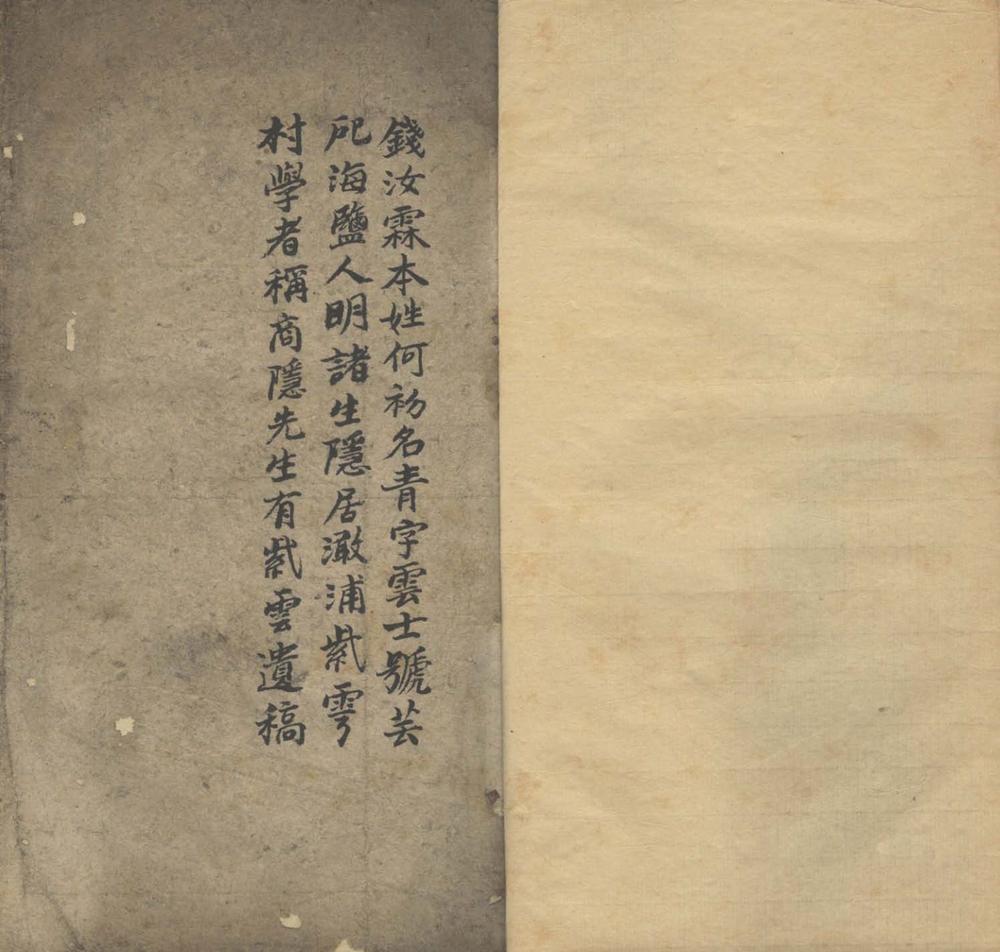 錢汝霖本姓何初名青字雲士號芸
𠨞海鹽人明諸生隱居澉浦紫雲
村學者稱商隱先生有紫雲遺稿